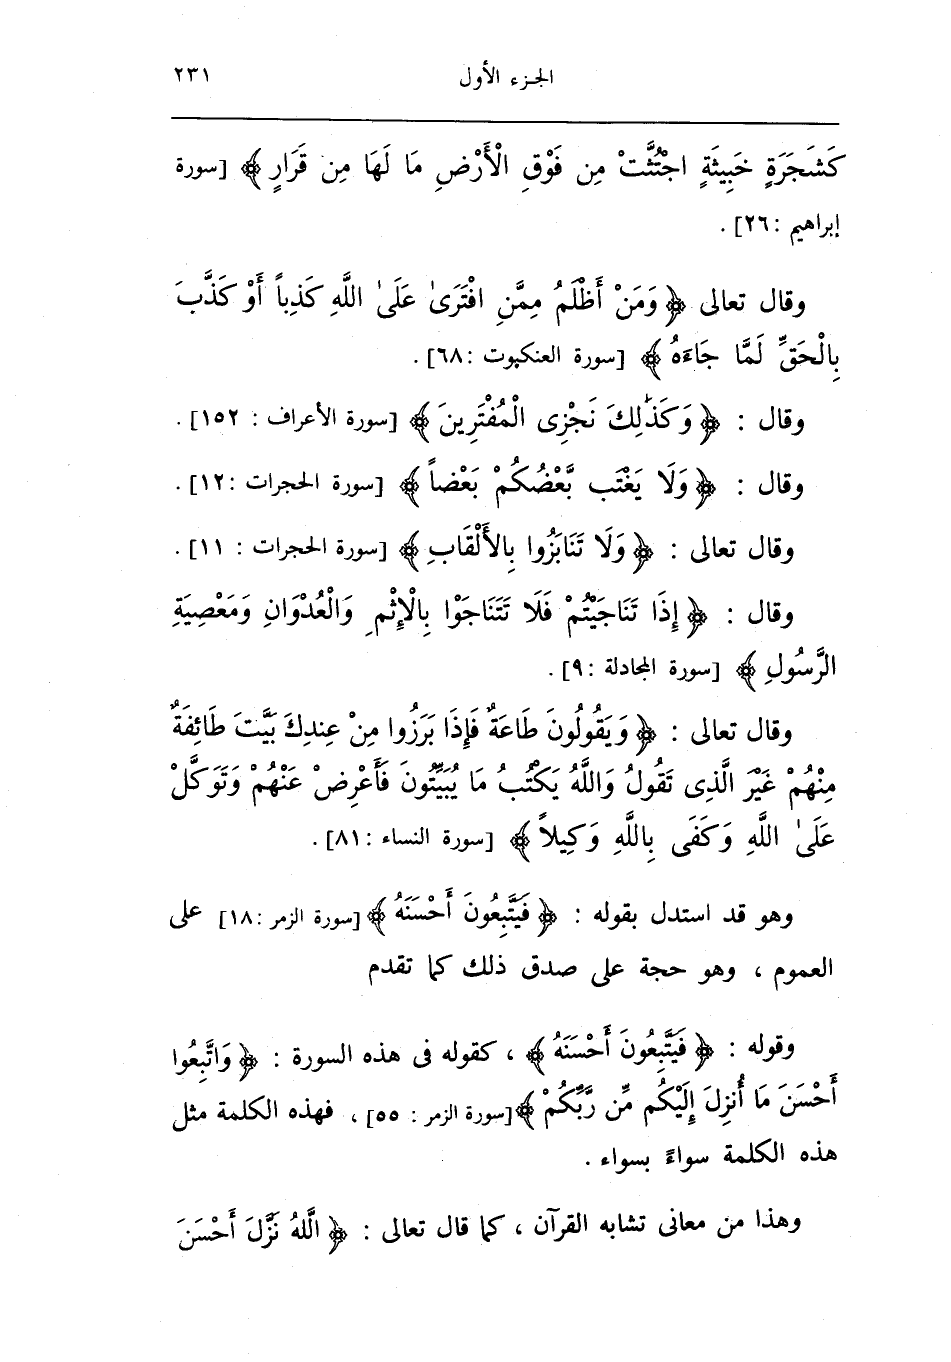 الجزء الأول ٢٣١
كَشَجَرَةٍ خَبِيثَةٍ اجْتُثَّتْ مِن فَوْقِ الْأَرْضِ مَا لَهَا مِن قَرَارٍ ﴾ [سورة
إبراهيم : ٢٦] .
وقال تعالى ﴿ وَمَنْ أَظْلَمُ مِمَّنِ افْتَرَىٰ عَلَىٰ اللَّهِ كَذِباً أَوْ كَذَّبَ
بِالْحَقِّ لَمَّا جَاءَهُ ﴾ [سورة العنكبوت : ٦٨] .
وقال : ﴿ وَكَذَٰلِكَ نَجْزِى الْمُفْتَرِينَ ﴾ [سورة الأعراف : ١٥٢] .
وقال : ﴿ وَلَا يَغْتَب بَّعْضُكُمْ بَعْضاً ﴾ [سورة الحجرات : ١٢] .
وقال تعالى : ﴿ وَلَا تَنَابَزُوا بِالأَلْقَابِ ﴾ [سورة الحجرات : ١١] .
وقال : ﴿ إِذَا تَنَاجَيْتُمْ فَلَا تَتَنَاجَوْا بِالْإِثْمِ وَالْعُدْوَانِ وَمَعْصِيَةِ
الرَّسُولِ ﴾ [سورة المجادلة : ٩] .
وقال تعالى : ﴿ وَيَقُولُونَ طَاعَةٌ فَإِذَا بَرَزُوا مِنْ عِندِكَ بَيَّتَ طَائِفَةٌ
مِنْهُمْ غَيْرَ الَّذِى تَقُولُ وَاللَّهُ يَكْتُبُ مَا يُبَيِّتُونَ فَأَعْرِضْ عَنْهُمْ وَتَوَكَّلْ
عَلَىٰ اللَّهِ وَكَفَى بِاللَّهِ وَكِيلاً ﴾ [سورة النساء : ٨١] .
وهو قد استدل بقوله : ﴿ فَيَتَّبِعُونَ أَحْسَنَهُ ﴾ [سورة الزمر : ١٨] على
العموم ، وهو حجة على صدق ذلك كما تقدم
وقوله : ﴿ فَيَتَّبِعُونَ أَحْسَنَهُ ﴾ ، كقوله فى هذه السورة : ﴿ وَاتَّبِعُوا
أَحْسَنَ مَا أُنزِلَ إِلَيْكُم مِّن رَّبِّكُمْ ﴾ [سورة الزمر : ٥٥] ، فهذه الكلمة مثل
هذه الكلمة سواءً بسواء .
وهذا من معانى تشابه القرآن ، كما قال تعالى : ﴿ اللَّهُ نَزَّلَ أَحْسَنَ